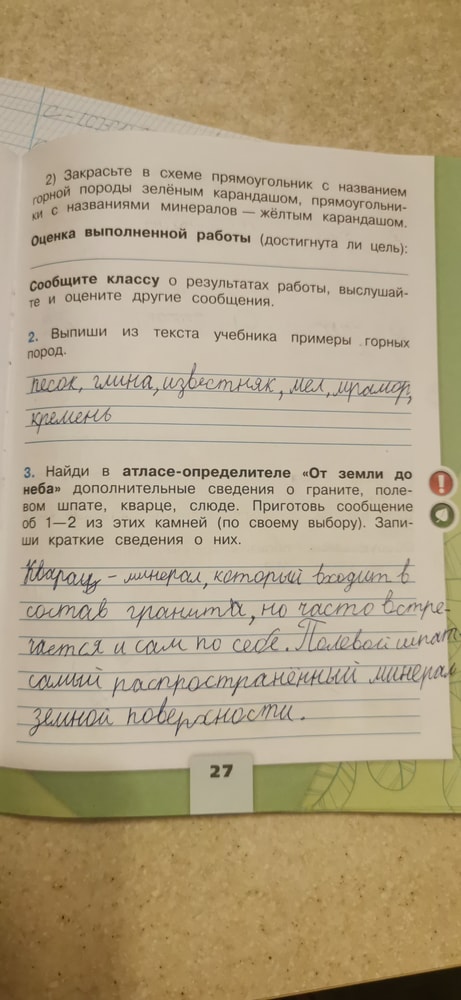 2) Закрасьте в схеме прямоугольник с названием
горной породы зелёным карандашом, прямоугольни-
ки с названиями минералов — жёлтым карандашом.
Оценка выполненной работы (достигнута ли цель):
Сообщите классу о результатах работы, выслушай-
те и оцените другие сообщения.
2. Выпиши из текста учебника примеры горных
пород.
песок, глина, известняк, мел, мрамор,
кремень
3. Найди в атласе-определителе «От земли до
неба» дополнительные сведения о граните, поле-
вом шпате, кварце, слюде. Приготовь сообщение
об 1—2 из этих камней (по своему выбору). Запи-
ши краткие сведения о них.
Кварц - минерал, который входит в
состав гранита, но часто встре-
чается и сам по себе. Полевой шпат
самый распространённый минерал
земной поверхности.
27